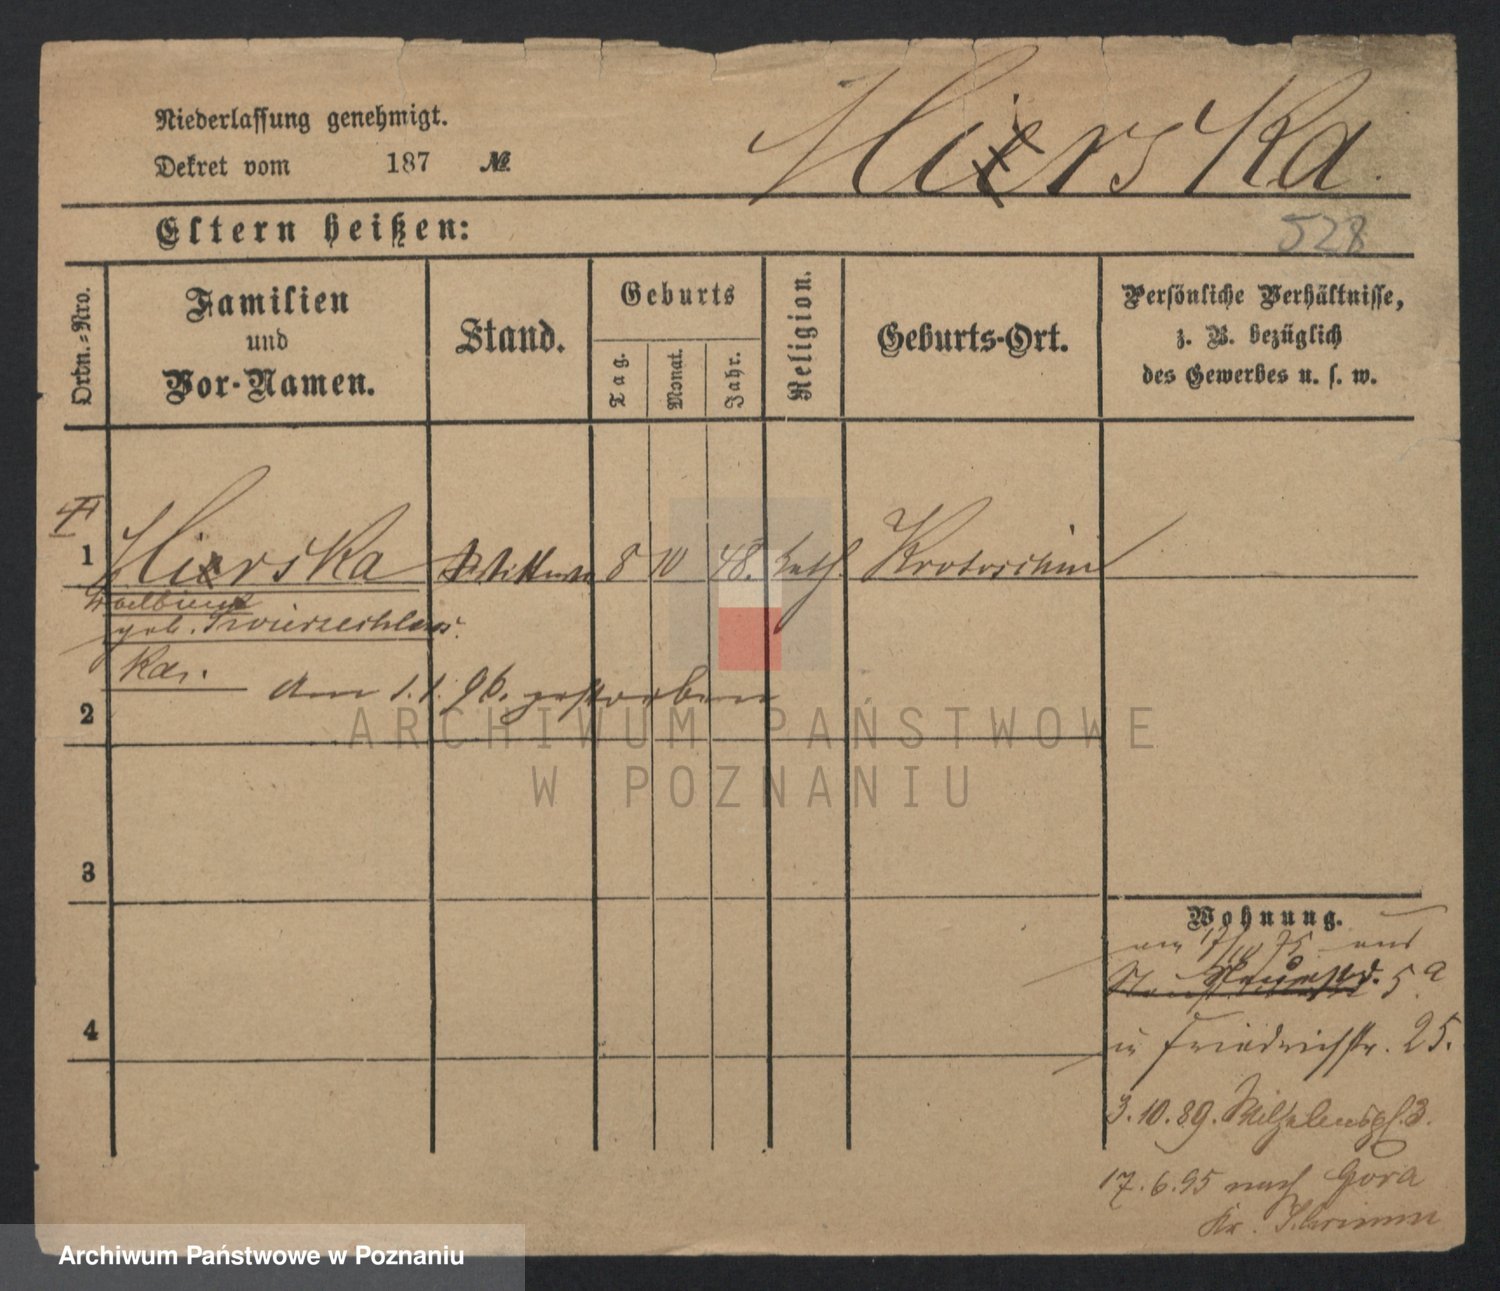 Niederlassung genehmigt.
Dekret vom 187 №
Hierska.
Eltern heißen:
528
Ordn.-Nro.
Familien
und
Vor-Namen.
Stand.
Geburts
Tag.
Monat.
Jahr.
Religion.
Geburts-Ort.
Persönliche Verhältnisse,
z. B. bezüglich
des Gewerbes u. s. w.
1 Hierska 8 10 48. kath. Krotoschin
geb.
ka.
am 1.1.96. gestorben
2
3
4
Wohnung.
am 17/10 75 aus
5a
in Friedrichstr. 25.
3.10.89. Wilhelmspl. 3.
17.6.95 nach Góra
Kr. Schrimm
ARCHIWUM PAŃSTWOWE
W POZNANIU
Archiwum Państwowe w Poznaniu